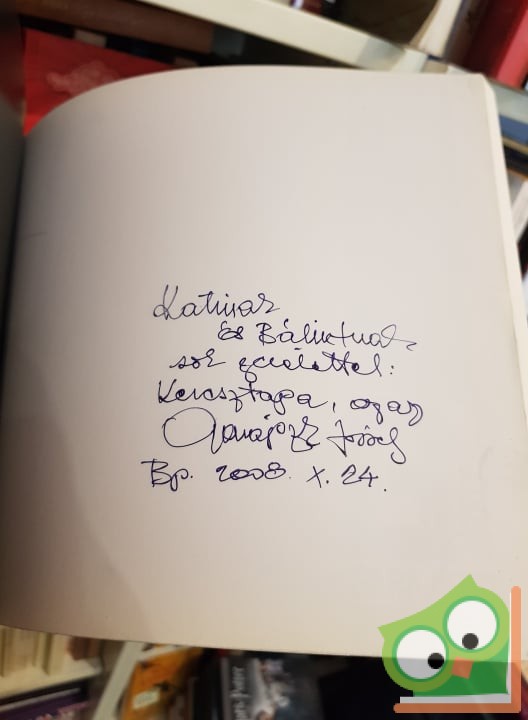 Katinak
és Bálintnak
sok szeretettel:
Keresztapa, azaz
József
Bp. 2008. X. 24.